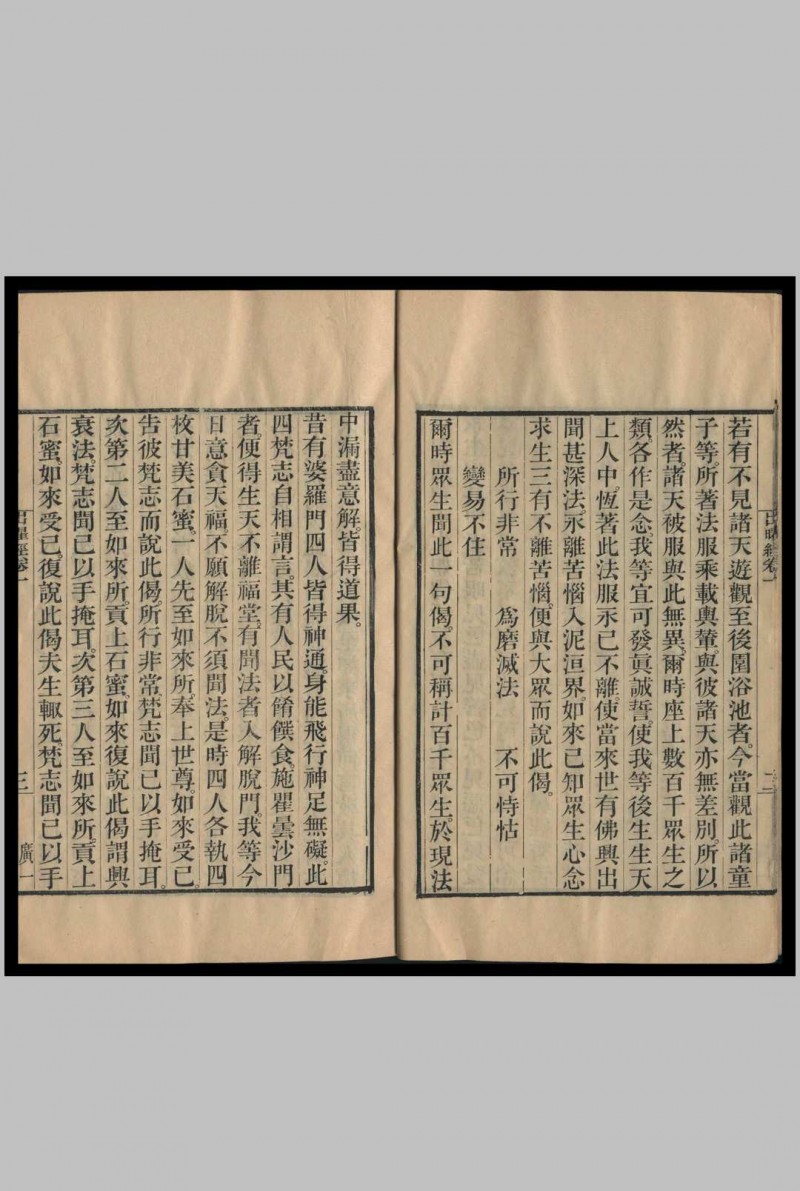 若有不見諸天遊觀至後園浴池者。今當觀此諸童
子等。所著法服乘載輿輦。與彼諸天亦無差別。所以
然者。諸天被服與此無異。爾時座上數百千眾生之
類。各作是念。我等宜可發眞誠誓。使我等後生生天
上人中。恆著此法服示已不離。使當來世有佛興出
聞甚深法。永離苦惱。入泥洹界。如來已知眾生心念
求生三有不離苦惱。便與大眾而說此偈。
所行非常 爲磨滅法 不可恃怙
變易不住
爾時眾生聞此一句偈。不可稱計百千眾生。於現法
三
中漏盡意解。皆得道果。
昔有婆羅門四人皆得神通。身能飛行神足無礙。此
四梵志自相謂言。其有人民以餚饌食。施瞿曇沙門
者。便得生天不離福堂。有聞法者入解脫門。我等今
日意貪天福。不願解脫不須聞法。是時四人各執四
枚甘美石蜜。一人先至如來所。奉上世尊。如來受已。
告彼梵志而說此偈。所行非常。梵志聞已以手掩耳。
次第二人至如來所。貢上石蜜。如來復說此偈。謂興
衰法。梵志聞已以手掩耳。次第三人至如來所。貢上
石蜜。如來受已。復說此偈。夫生輒死。梵志聞已以手
廣一